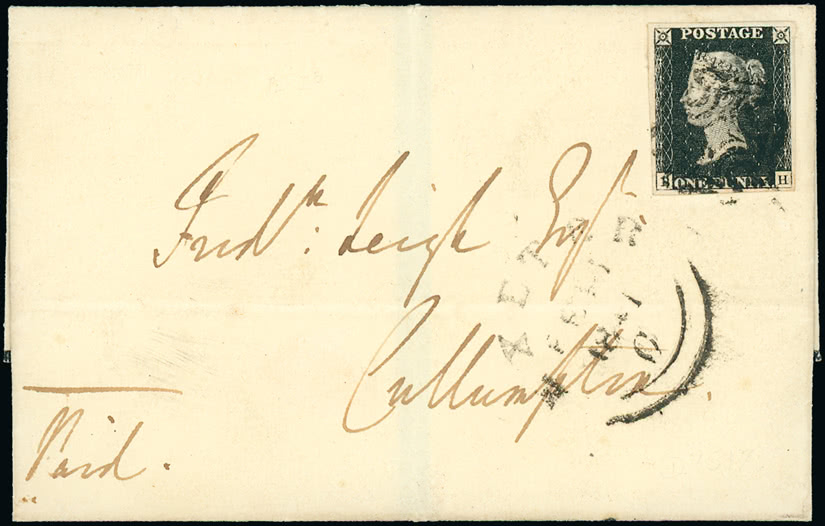 POSTAGE
ONE PENNY
H
Fred.k: Leigh Esq.r
EXETER
Cullompton.
Paid.